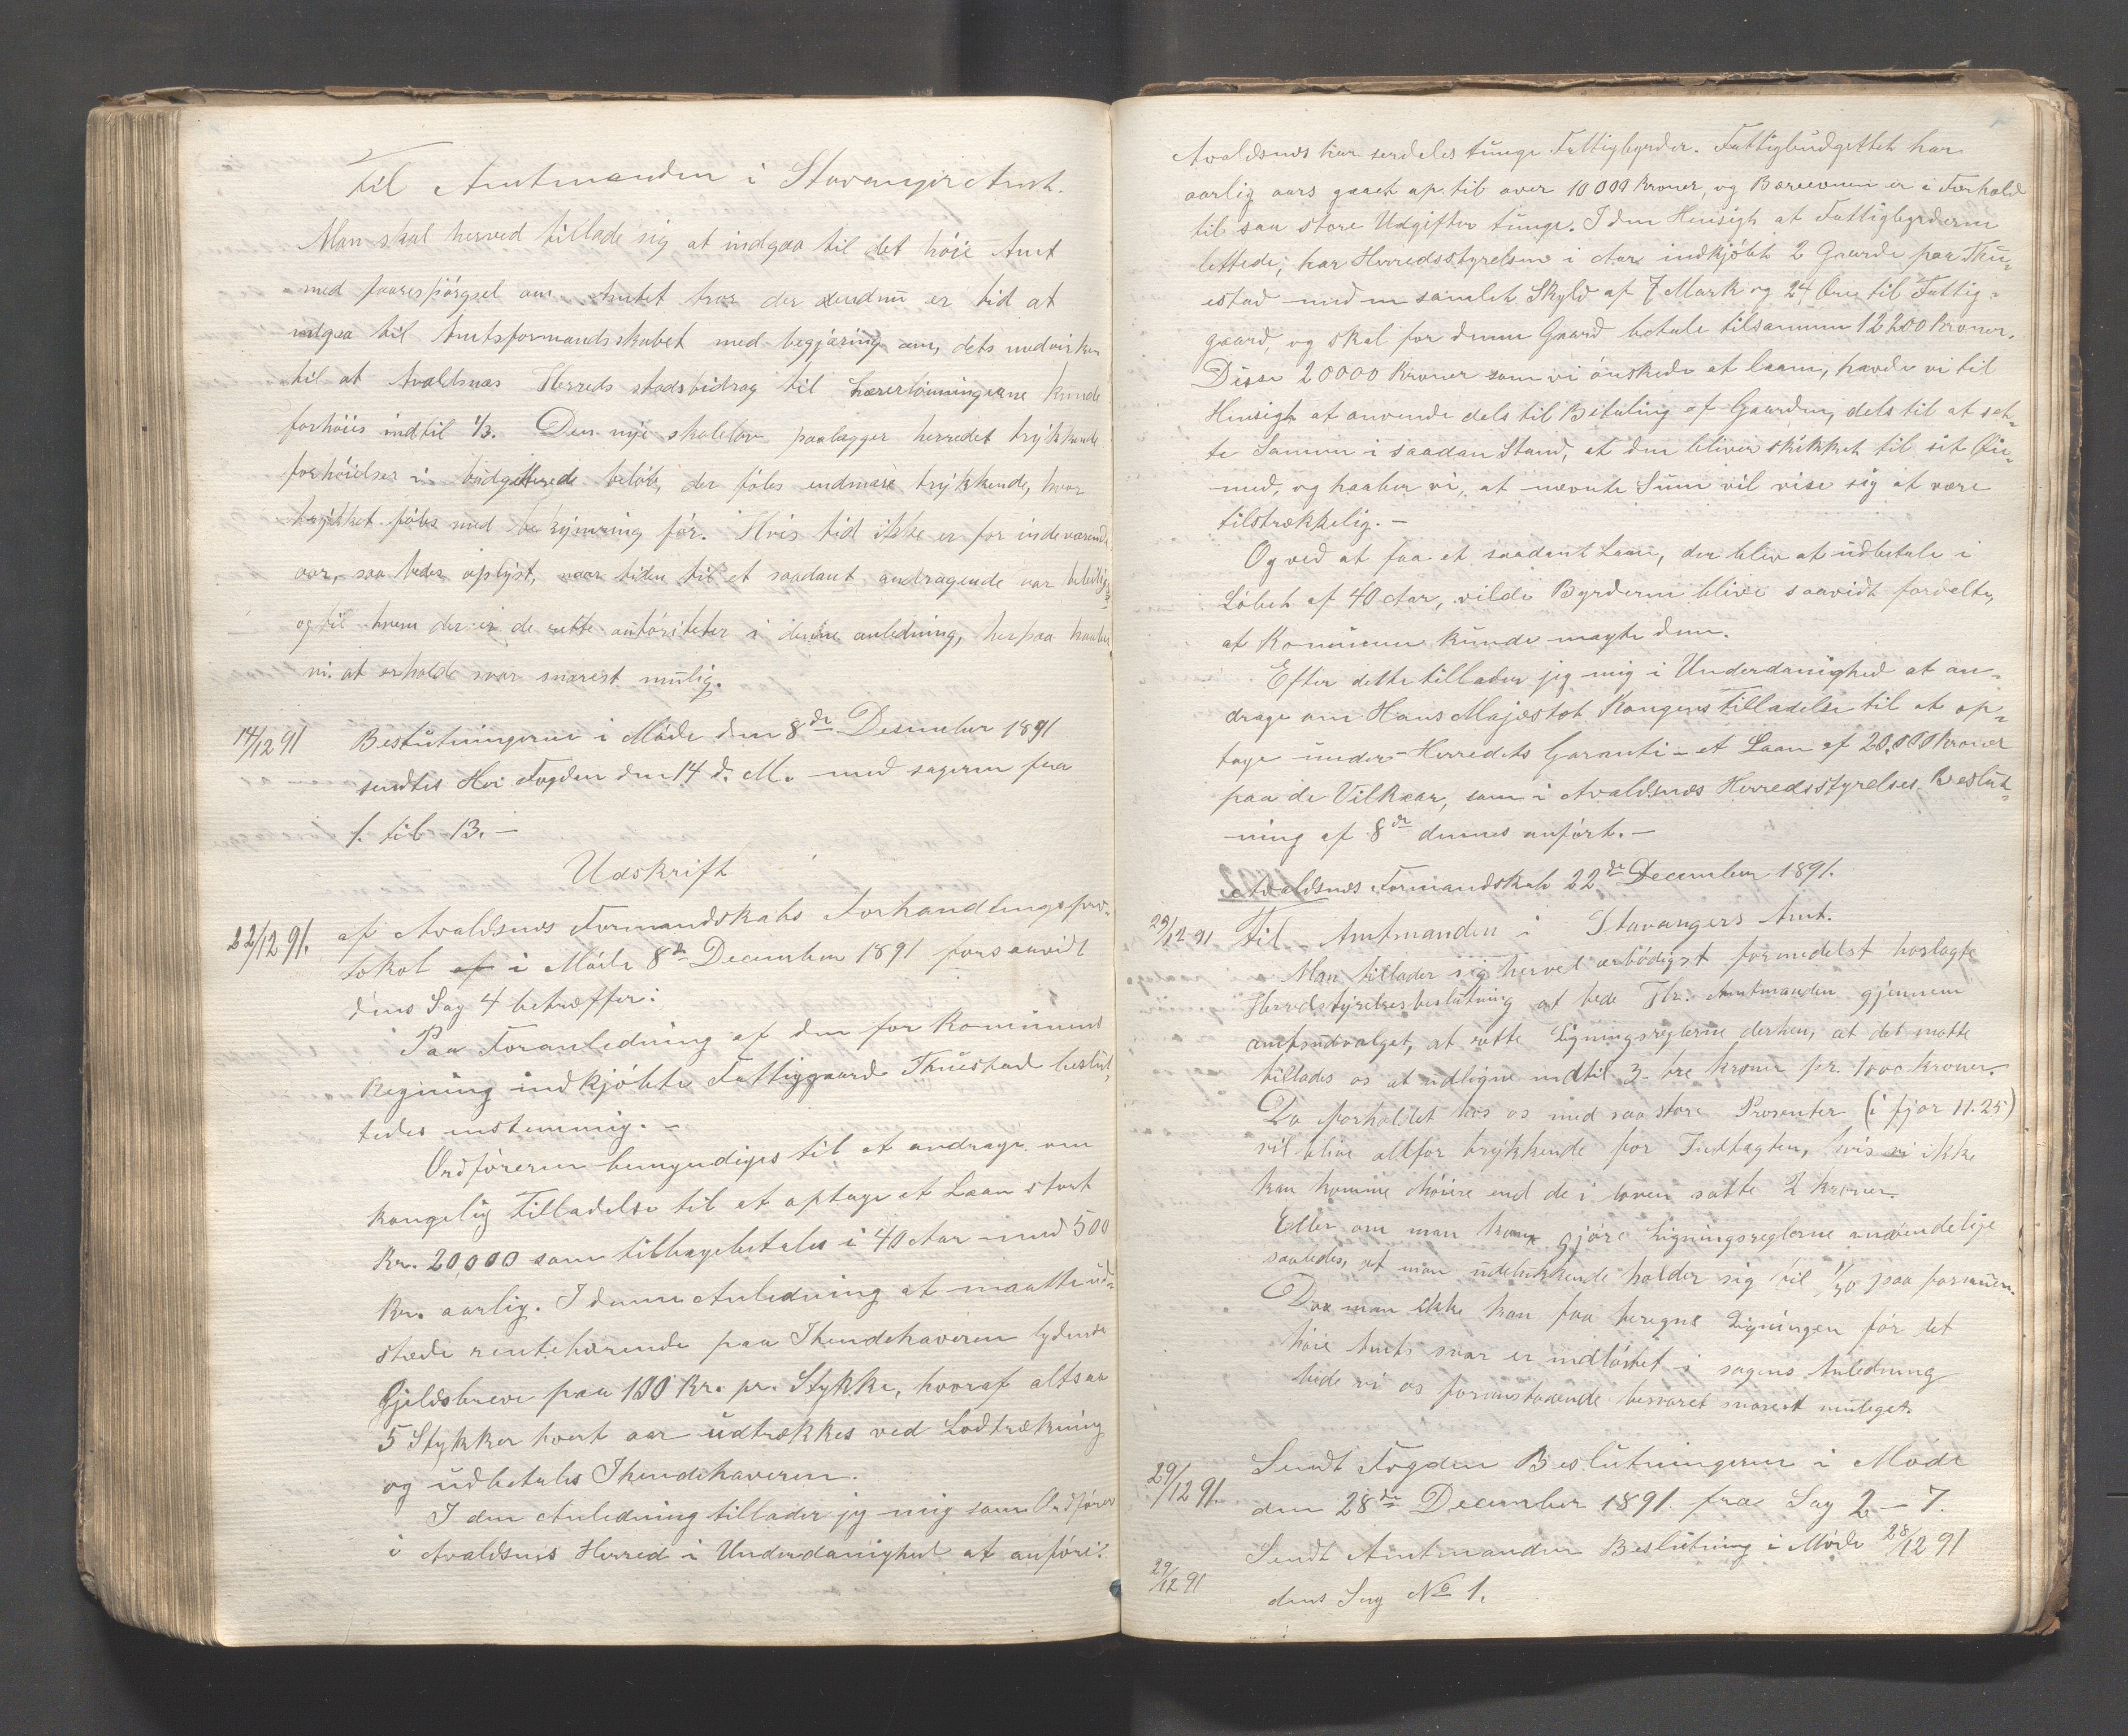 Til Amtmanden i Stavanger Amt.
Man skal herved tillade sig at indgaa til det høie Amt
med foorespørgsel om Amtet tror der endnu er tid at
indgaa til Amtsformandsskabet med begjæring om, dets medvirken
til at Avaldsnæs Herreds stadsbidrag til Lærerlønningerne kunde
forhøies indtil 1/3. Den nye skolelov paalægger herredet trykkende
forhøielser i budgetterede beløb, der føles endmere trykkende, hvor
trykket føles med bekymring før. Hvis tid ikke er for indeværende
aar, saa bedes oplyst, naar tiden til et saadant andragende var beleilig
og til hvem der er de rette autoriteter i denne anledning, herpaa haaber
vi at erholde svar snarest mulig.
14/12 91 Beslutningerne i Møde den 8de Desember 1891
sendtes Hr Fogden den 14 d. M. med sagerne fra
1. til 13. –
Udskrift
22/12 91. af Avaldsnes Formandskabs Forhandlingspro-
tokol af i Møde 8de December 1891 forsaavidt
dens Sag 4 betræffer:
Paa Foranledning af den for Kommunens
Regning indkjøbte Fattiggaard Thuestad beslut-
tedes enstemmig. –
Ordføreren bemyndiges til at andrage om
Kongelig Tilladelse til at optage et Laan stort
Kr. 20,000 som tilbagebetales i 40 Aar med 500
Kr. aarlig. I denne Anledning at maatte ud-
stæde rentebærende paa Ihendehaveren lydende
Gjeldsbreve paa 100 Kr. pr. Stykke, hvoraf altsaa
5 Stykker hvert aar udtrækkes ved Lodtrækning
og udbetales Ihendehaveren.
I den Anledning tillader jeg mig som Ordfører
i Avaldsnes Herred i Underdanighed at anføre:
Avaldsnes har serdeles tunge Fattigbyrder. Fattigbudgettet har
aarlig aars gaaet op til over 10000 Kroner, og Bæreevnen er i Forhold
til saa store Udgifter tunge. I den Hensigt at Fattigbyrderne
lettede, har Herredsstyrelsen i Aar indkjøbt 2 Gaarde paa Thu-
estad med en samlet Skyld af 7 Mark og 24 Øre til Fattig-
gaard, og skal for denne Gaard betale tilsammen 12200 Kroner.
Disse 20000 Kroner som vi ønskede at laane, havde vi til
Hensigt at anvende dels til Betaling af Gaarden, dels til at sæt-
te Samme i saadan Stand, at den bliver skikket til sit Øie-
med, og haaber vi, at nævnte Sum vil vise sig at være
tilstrækkelig. –
Og ved at faa et saadant Laan, der blev at udbetale i
Løbet af 40 Aar, vilde Byrderne blive saavidt fordelte,
at Kommunen kunde magte dem.
Efter dette tillader jeg mig i Underdanighed at an-
drage om Hans Majestæt Kongens Tilladelse til at op-
tage under Herredets Garanti et Laan af 20,000 Kroner
paa de Vilkaar, som i Avaldsnes Herredsstyrelses Beslut-
ning af 8de dennes anført. –
Avaldsnes Formandskab 22de December 1891.
23/12 91 Til Amtmanden i Stavangers Amt.
Man tillader sig herved ærbødigst formedelst hoslagte
Herredstyrelsesbeslutning at bede Hr. Amtmanden gjennem
amtsudvalget, at rette Ligningsreglerne derhen, at det maatte
tillades os at udligne indtil 3- tre kroner pr. 1000 kroner.
Da forholdet hos os med saa store Prosenter (i fjor 11.25)
vil blive altfor trykkende for Indtægten, hvis vi ikke
kan komme høiere end de i loven satte 2 kroner.
Eller om man kan gjøre Ligningsreglerne anvendelige
saaledes, at man udelukkende holder sig til 1/30 paa formuen.
Daa man ikke kan faa beregnet Ligningen før det
høie Amts svar er indløbet i sagens Anledning
bede vi os foranstaaende besvaret snarest muligst.
29/12 91. Sendt Fogden Beslutningerne i Møde
den 28de December 1891 fra Sag 2 – 7.
29/12 91 Sendt Amtmanden Beslutning i Møde 28/12 91
dens Sag No 1.